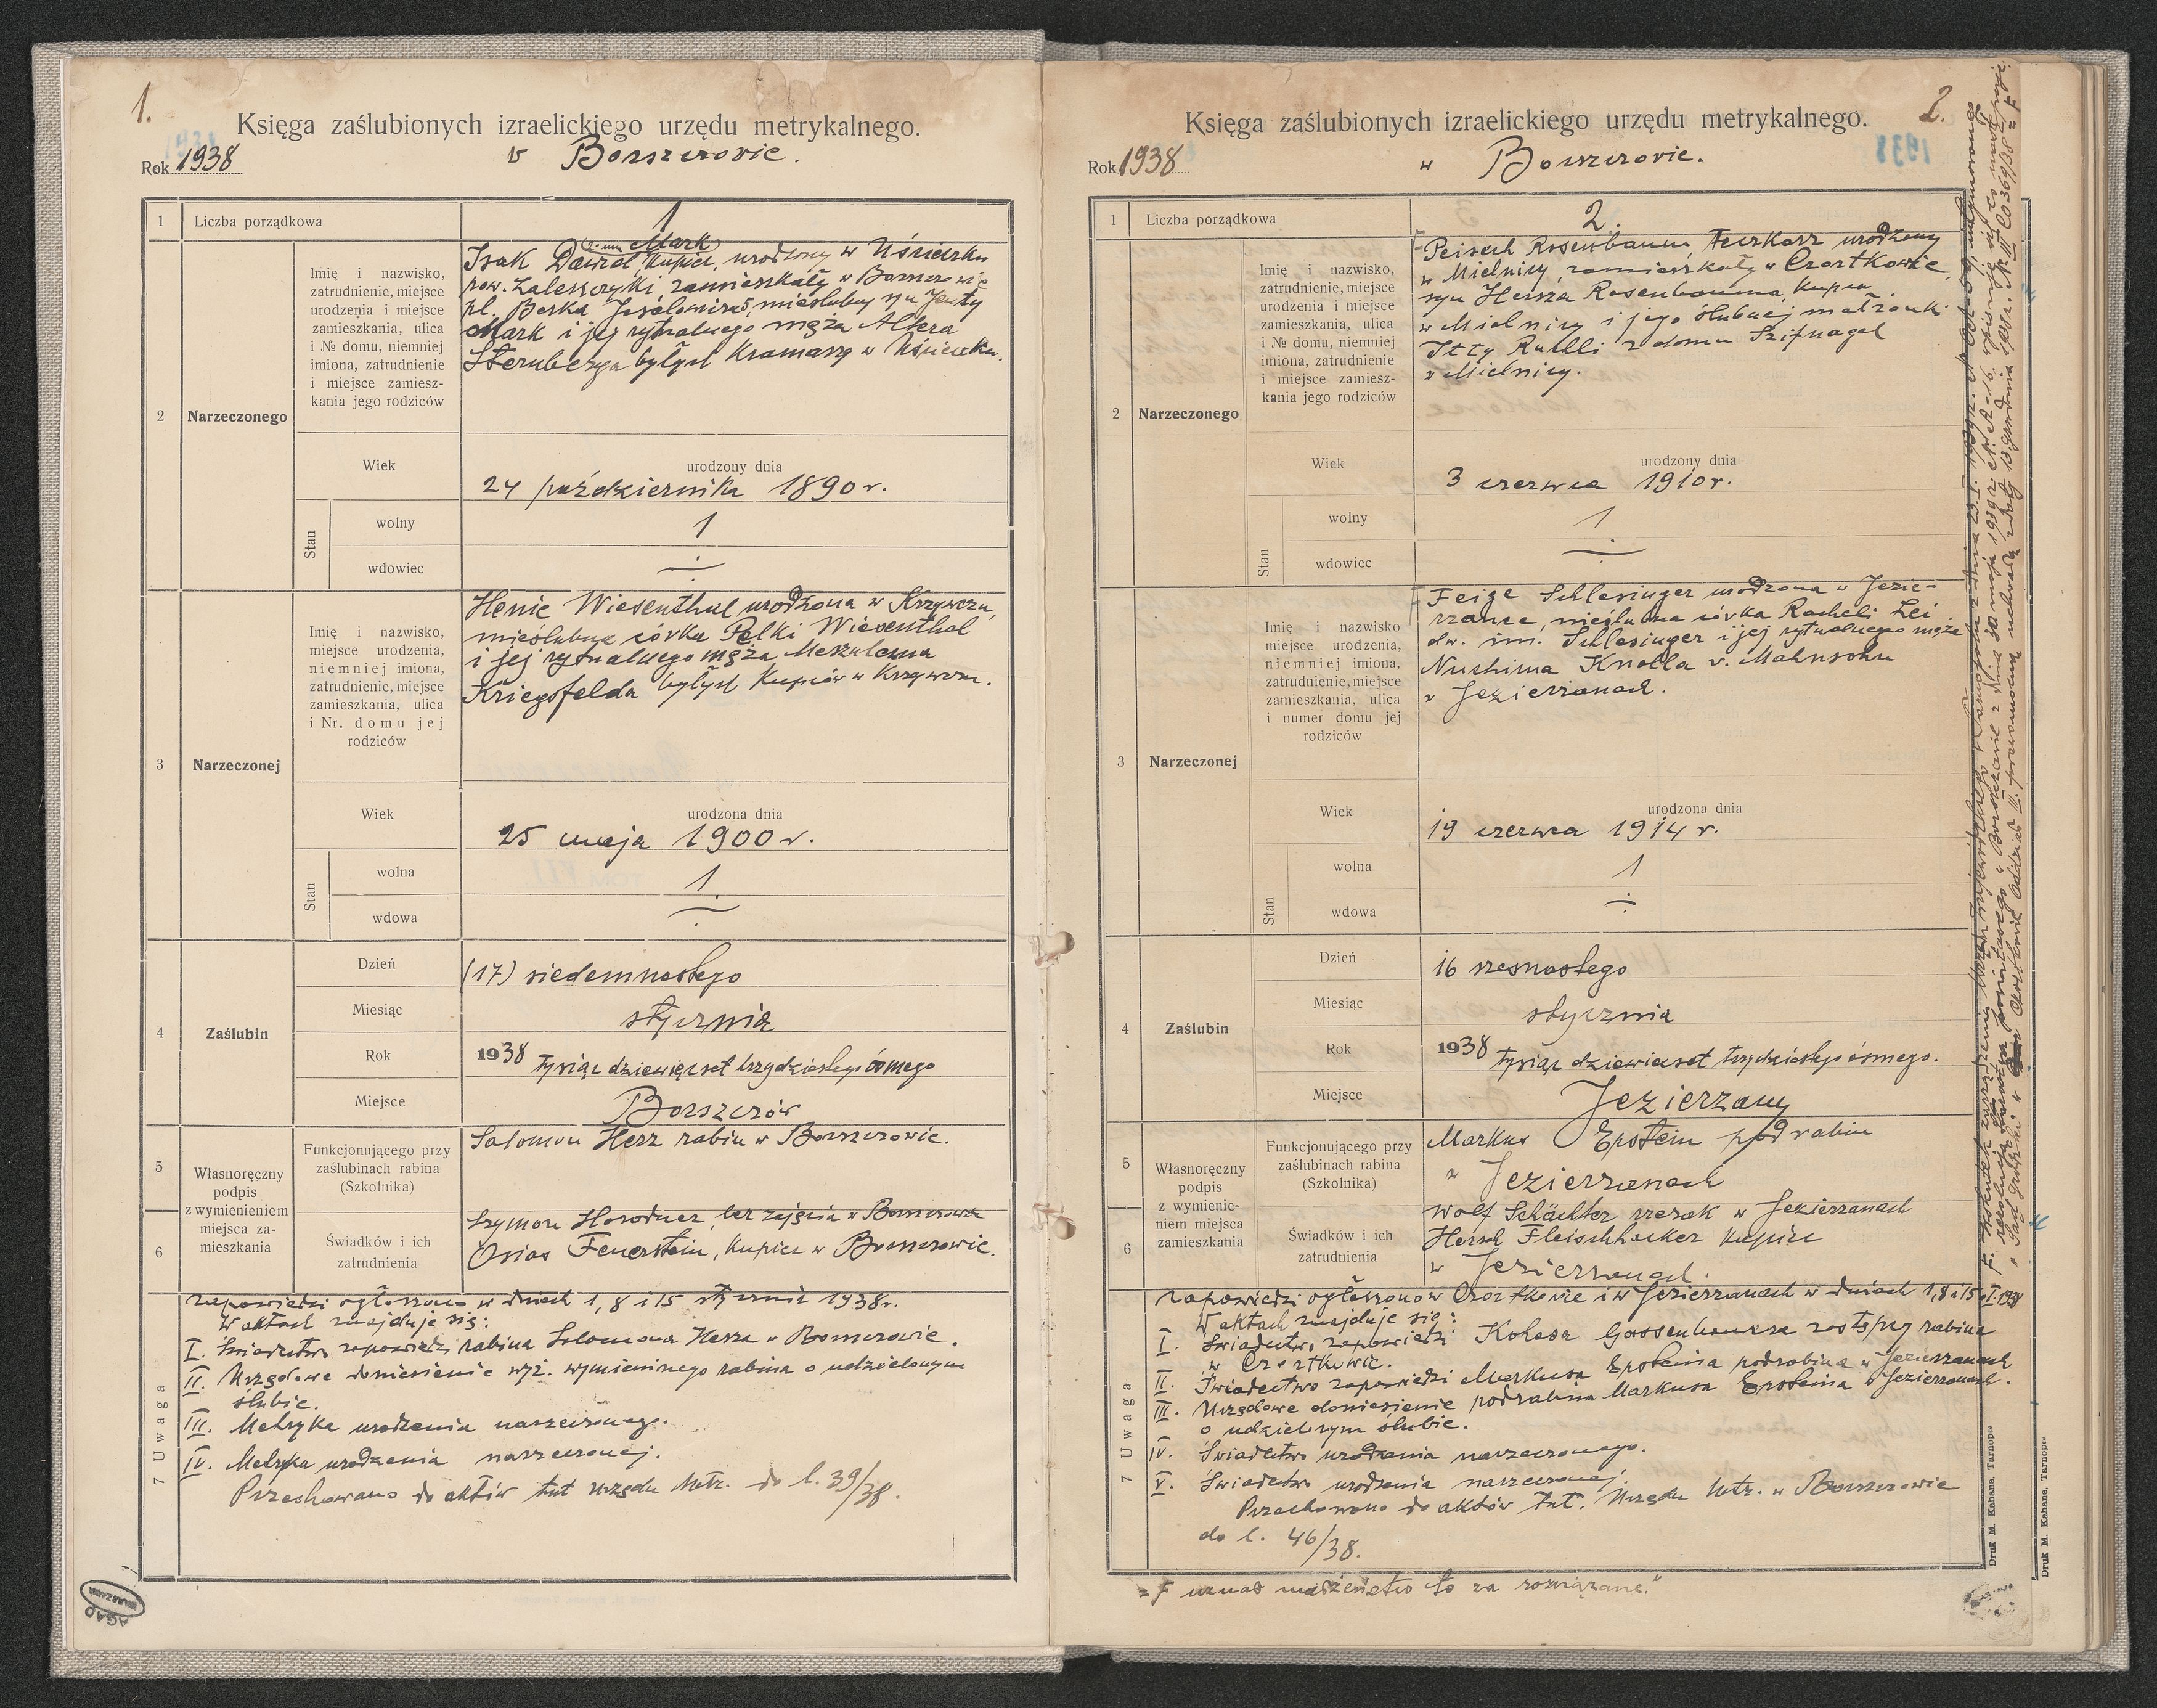 1.
Księga zaślubionych izraelickiego urzędu metrykalnego.
w Borszczowie.
Rok 1938
1 Liczba porządkowa 1
2 Narzeczonego
Imię i nazwisko,
zatrudnienie, miejsce
urodzenia i miejsce
zamieszkania, ulica
i № domu, niemniej
imiona, zatrudnienie
i miejsce zamiesz-
kania jego rodziców
Mark
Isak Dawid, kupiec, urodzony w Uścieczku
pow. Zaleszczyki zamieszkały w Borszczowie
pl. Berka Joselewicza, nieślubny syn Jenty
Mark i jej rytualnego męża Altera
Sternberga byłych kramarzy w Uścieczku.
Wiek
urodzony dnia
24 października 1890 r.
Stan
wolny 1
wdowiec ÷
3 Narzeczonej
Imię i nazwisko,
miejsce urodzenia,
niemniej imiona,
zatrudnienie, miejsce
zamieszkania, ulica
i Nr. domu jej
rodziców
Henie Wiesenthal urodzona w Krzywczu,
nieślubna córka Pelki Wiesenthal
i jej rytualnego męża Meszulema
Kriegsfelda byłych kupców w Krzywczu.
Wiek
urodzona dnia
25 maja 1900 r.
Stan
wolna 1.
wdowa ÷
4 Zaślubin
Dzień (17) siedemnastego
Miesiąc stycznia
Rok 1938 tysiąc dziewięćset trzydziestego ósmego
Miejsce Borszczów
Własnoręczny
podpis
z wymienieniem
miejsca za-
mieszkania
5 Funkcjonującego przy
zaślubinach rabina
(Szkolnika)
Salomon Herz rabin w Borszczowie.
6 Świadków i ich
zatrudnienia
Szymon Horodner, bez zajęcia w Borszczowie
Osias Feuerstein, kupiec w Borszczowie.
7 Uwaga
Zapowiedzi ogłoszono w dniach 1, 8 i 15 stycznia 1938 r.
W aktach znajduje się:
I. Świadectwo zapowiedzi rabina Salomona Herza w Borszczowie.
II. Urzędowe doniesienie wyż. wymienionego rabina o udzielonym
ślubie.
III. Metryka urodzenia narzeczonego.
IV. Metryka urodzenia narzeczonej.
Przechowano do aktów tut. Urzędu Metr. do l. 39/38.
AGAD
WARSZAWA
2.
Księga zaślubionych izraelickiego urzędu metrykalnego.
w Borszczowie.
Rok 1938
1938
1 Liczba porządkowa 2.
2 Narzeczonego
Imię i nazwisko,
zatrudnienie, miejsce
urodzenia i miejsce
zamieszkania, ulica
i № domu, niemniej
imiona, zatrudnienie
i miejsce zamiesz-
kania jego rodziców
Peisach Rosenbaum urodzony
w Mielnicy zamieszkały w Czortkowie,
syn Hersza Rosenbauma, kupca
w Mielnicy i jego ślubnej małżonki
Itty Ruchli z domu Szifnagel
z Mielnicy.
Wiek
urodzony dnia
3 czerwca 1910 r.
Stan
wolny 1
wdowiec ÷
3 Narzeczonej
Imię i nazwisko
miejsce urodzenia,
niemniej imiona,
zatrudnienie, miejsce
zamieszkania, ulica
i numer domu jej
rodziców
Feige Schlesinger urodzona w Jezie-
rzance, nieślubna córka Racheli Lei
dw. im. Schlesinger i jej rytualnego męża
Nuchima Knolla v. Mahnsohn
w Jezierzanach.
Wiek
urodzona dnia
19 czerwca 1914 r.
Stan
wolna 1
wdowa ÷
4 Zaślubin
Dzień 16 szesnastego
Miesiąc stycznia
Rok 1938 tysiąc dziewięćset trzydziestego ósmego.
Miejsce Jezierzany
Własnoręczny
podpis
z wymienie-
niem miejsca
zamieszkania
5 Funkcjonującego przy
zaślubinach rabina
(Szkolnika)
Markus Epstein podrabin
w Jezierzanach
6 Świadków i ich
zatrudnienia
Wolf Schächter rzezak w Jezierzanach
Hersch Fleischhacker kupiec
w Jezierzanach.
7 Uwaga
Zapowiedzi ogłoszono w Czortkowie i w Jezierzanach w dniach 1, 8 i 15 I. 1938
W aktach znajduje się:
I. Świadectwo zapowiedzi Kohosa Gassenbauera zastępcy rabina
w Czortkowie.
II. Świadectwo zapowiedzi Markusa Epsteina podrabina w Jezierzanach
III. Urzędowe doniesienie podrabina Markusa Epsteina w Jezierzanach.
o udzielonym ślubie.
IV. Świadectwo urodzenia narzeczonego.
V. Świadectwo urodzenia narzeczonej.
Przechowano do aktów tut. Urzędu Metr. w Borszczowie
do l. 46/38.
= F uznał małżeństwo to za rozwiązane."
Druk M. Kahane, Tarnopol
Druk M. Kahane, Tarnopol